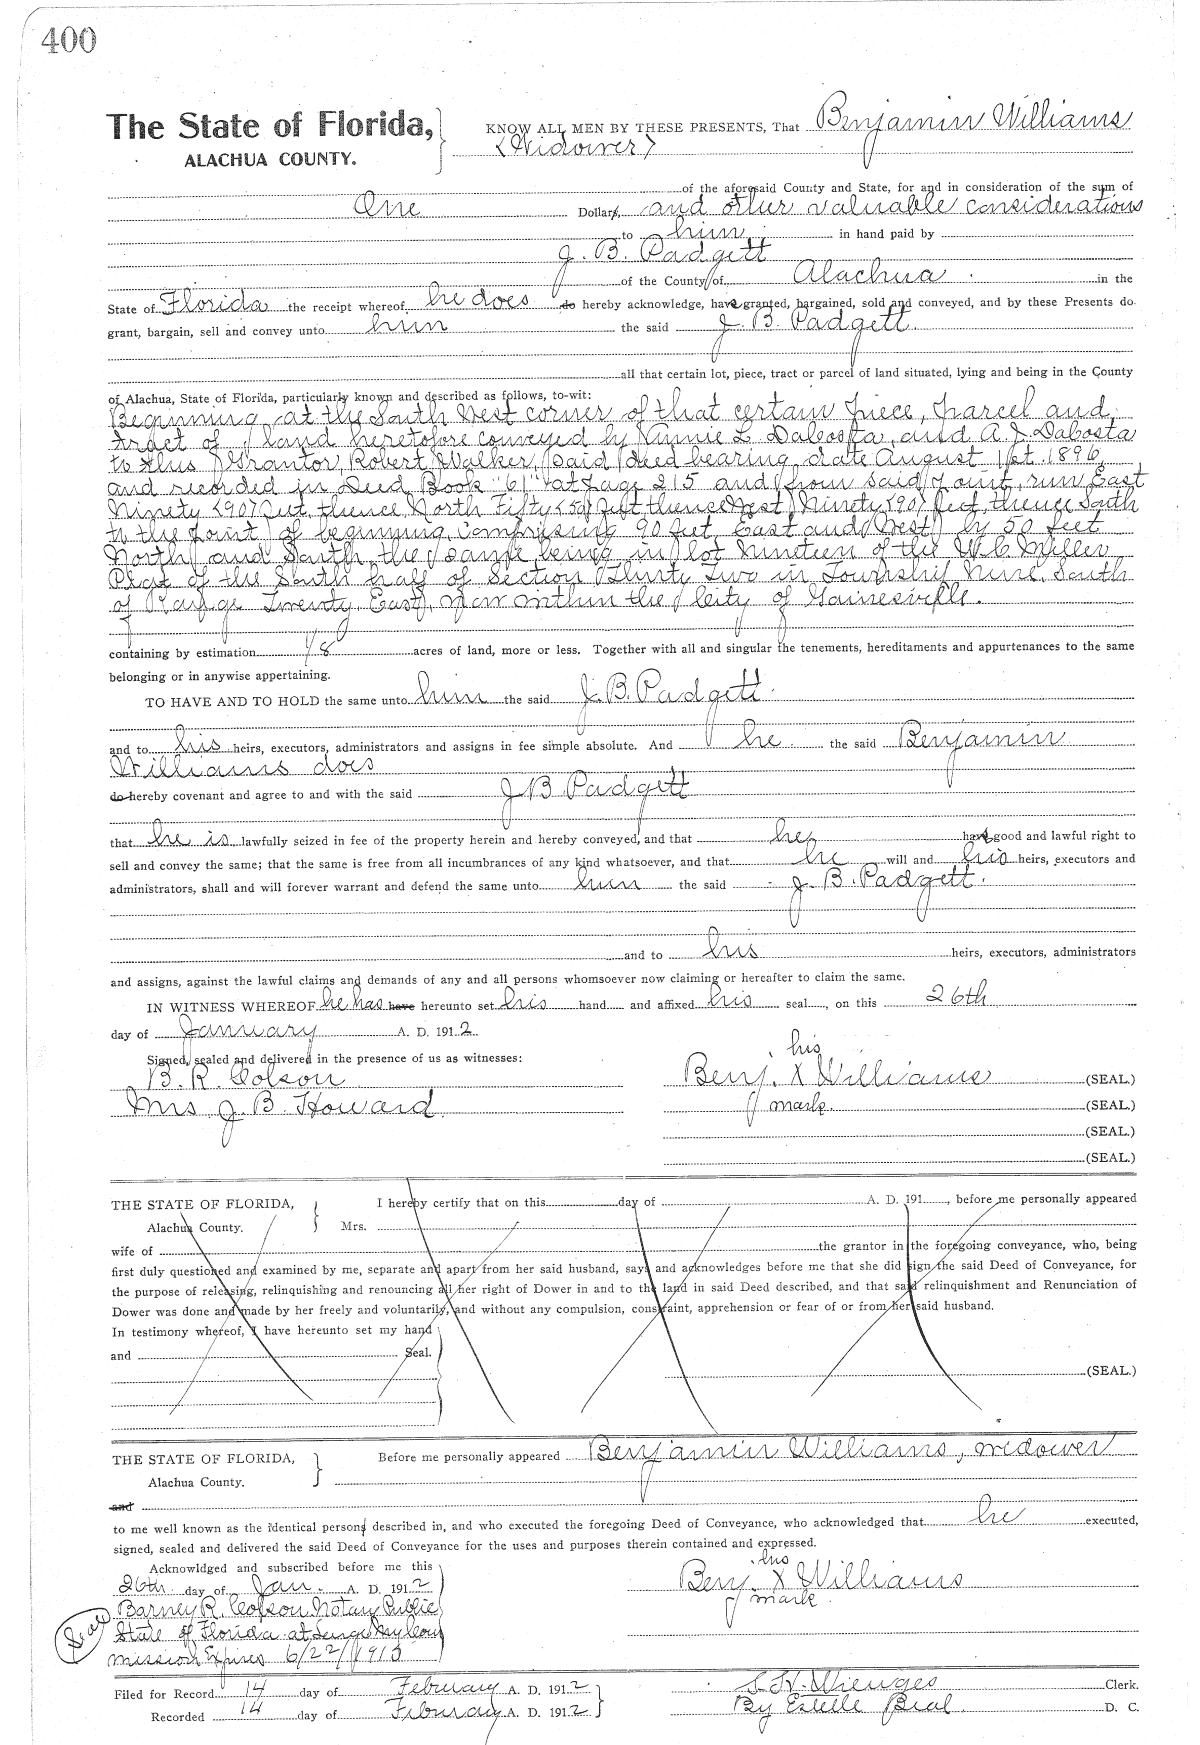 400
The State of Florida, KNOW ALL MEN BY THESE PRESENTS, That Benjamin Williams
ALACHUA COUNTY. <Widower>
of the aforesaid County and State, for and in consideration of the sum of
One Dollar, and other valuable considerations
to him in hand paid by
J. B. Padgett
of the County of Alachua in the
State of Florida the receipt whereof he does do hereby acknowledge, have granted, bargained, sold and conveyed, and by these Presents do
grant, bargain, sell and convey unto him the said J. B. Padgett
all that certain lot, piece, tract or parcel of land situated, lying and being in the County
of Alachua, State of Florida, particularly known and described as follows, to-wit:
Beginning at the South West corner of that certain piece, parcel and
tract of land heretofore conveyed by Annie L Dacosta and A. J. Dacosta
to this Grantor, Robert Walker, said deed bearing date August 1st. 1896
and recorded in Deed Book "61" at page 215 and from said point, run East
Ninety <90> feet, thence North Fifty <50> feet, thence West Ninety <90> feet, thence South
to the point of beginning, Comprising 90 feet East and West by 50 feet
North and South, the same being in lot Nineteen of the W. C. Miller
Plat of the South half of Section Thirty Two in Township Nine, South
of Range Twenty East, now within the City of Gainesville.
containing by estimation 1/8 acres of land, more or less. Together with all and singular the tenements, hereditaments and appurtenances to the same
belonging or in anywise appertaining.
TO HAVE AND TO HOLD the same unto him the said J. B. Padgett.
and to his heirs, executors, administrators and assigns in fee simple absolute. And he the said Benjamin
Williams does
do hereby covenant and agree to and with the said J B Padgett
that he is lawfully seized in fee of the property herein and hereby conveyed, and that he has good and lawful right to
sell and convey the same; that the same is free from all incumbrances of any kind whatsoever, and that he will and his heirs, executors and
administrators, shall and will forever warrant and defend the same unto him the said J. B. Padgett.
and to his heirs, executors, administrators
and assigns, against the lawful claims and demands of any and all persons whomsoever now claiming or hereafter to claim the same.
IN WITNESS WHEREOF he has have hereunto set his hand and affixed his seal, on this 26th
day of January A. D. 1912.
Signed, sealed and delivered in the presence of us as witnesses: his
B. R. Colson Benj. X Williams (SEAL.)
Mrs J. B. Howard mark. (SEAL.)
(SEAL.)
(SEAL.)
THE STATE OF FLORIDA, I hereby certify that on this day of A. D. 191 , before me personally appeared
Alachua County. Mrs.
wife of the grantor in the foregoing conveyance, who, being
first duly questioned and examined by me, separate and apart from her said husband, says and acknowledges before me that she did sign the said Deed of Conveyance, for
the purpose of releasing, relinquishing and renouncing all her right of Dower in and to the land in said Deed described, and that said relinquishment and Renunciation of
Dower was done and made by her freely and voluntarily, and without any compulsion, constraint, apprehension or fear of or from her said husband.
In testimony whereof, I have hereunto set my hand
and Seal.
(SEAL.)
THE STATE OF FLORIDA, Before me personally appeared Benjamin Williams, widower
Alachua County.
and
to me well known as the identical person described in, and who executed the foregoing Deed of Conveyance, who acknowledged that he executed,
signed, sealed and delivered the said Deed of Conveyance for the uses and purposes therein contained and expressed.
Acknowldged and subscribed before me this his
26th day of Jan. A. D. 1912 Benj. X Williams
Barney R. Colson Notary Public mark.
Seal State of Florida at Large My Com
mission Expires 6/22/1913
Filed for Record 14 day of February A. D. 1912 S. H. Wienges Clerk.
Recorded 14 day of February A. D. 1912 By Estelle Beal D. C.